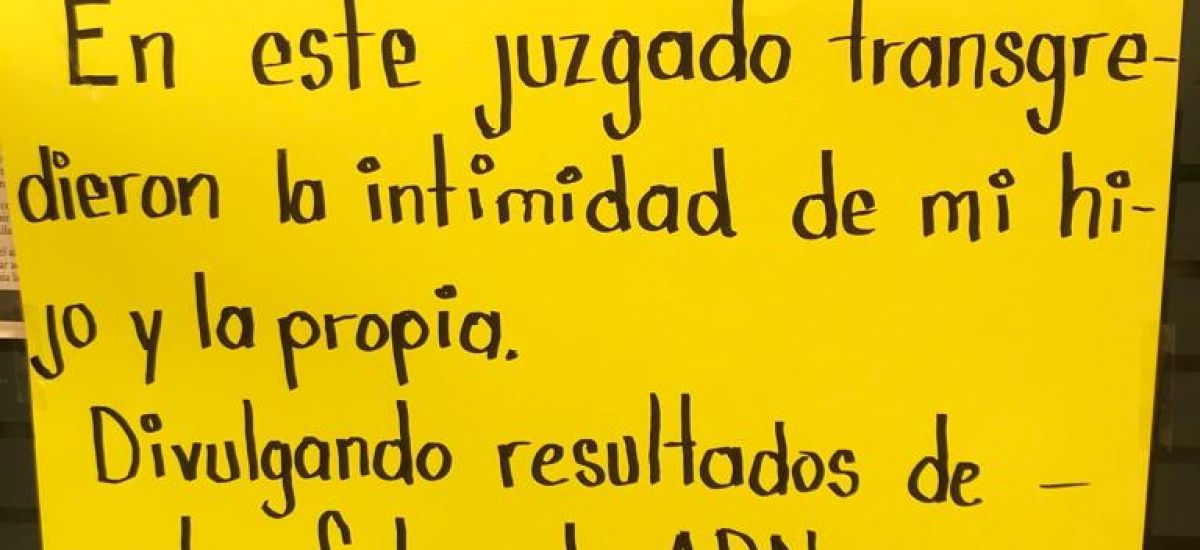 En este juzgado transgre-
dieron la intimidad de mi hi-
jo y la propia.
Divulgando resultados de -
ADN